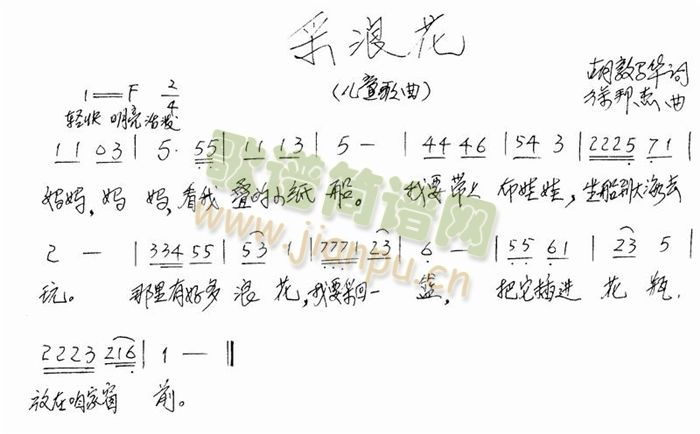 采浪花
(儿童歌曲)
胡敦华词
1=F 2/4
徐邦杰曲
轻快 明亮 活泼
1 1 0 3 | 5· 5 5 | 1 1 1 3 | 5 - | 4 4 4 6 | 5 4 3 | 2 2 2 5 7 1 |
妈妈,妈妈,看我叠的小纸船。我要带上布娃娃,坐船到大海去
2 - | 3 3 4 5 5 | 5 3 1 | 7 7 7 1 2 3 | 6 - | 5 5 6 1 | 2 3 5 |
玩。那里有好多浪花,我要采回一篮,把它插进花瓶,
2 2 2 3 2 1 6 | 1 - ‖
放在咱家窗前。
歌谱简谱网
www.jianpu.cn